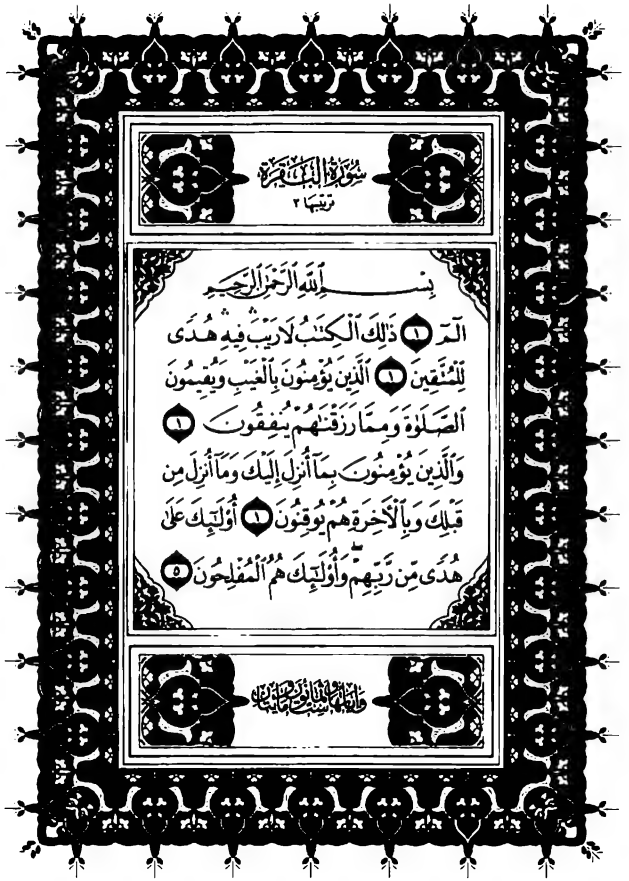 سُورَةُ الْبَقَرَةِ
ترتيبها ٢
بِسْمِ ٱللَّهِ ٱلرَّحْمَٰنِ ٱلرَّحِيمِ
الٓمٓ ١ ذَٰلِكَ ٱلْكِتَٰبُ لَا رَيْبَ ۛ فِيهِ ۛ هُدًى
لِّلْمُتَّقِينَ ١ ٱلَّذِينَ يُؤْمِنُونَ بِٱلْغَيْبِ وَيُقِيمُونَ
ٱلصَّلَوٰةَ وَمِمَّا رَزَقْنَٰهُمْ يُنفِقُونَ ١
وَٱلَّذِينَ يُؤْمِنُونَ بِمَآ أُنزِلَ إِلَيْكَ وَمَآ أُنزِلَ مِن
قَبْلِكَ وَبِٱلْءَاخِرَةِ هُمْ يُوقِنُونَ ١ أُو۟لَٰٓئِكَ عَلَىٰ
هُدًى مِّن رَّبِّهِمْ ۖ وَأُو۟لَٰٓئِكَ هُمُ ٱلْمُفْلِحُونَ ٥
وآياتها ست وثمانون ومايتان